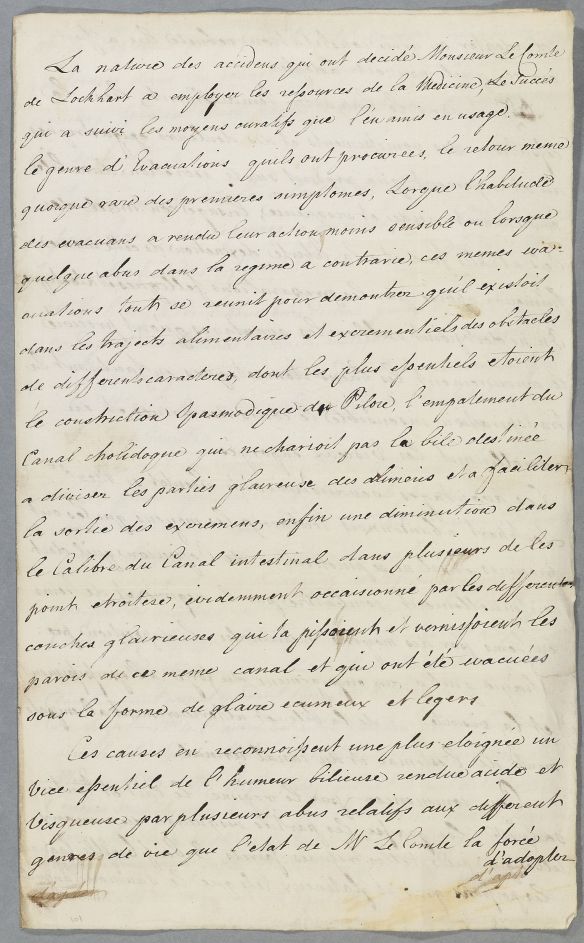 La nature des accidens qui ont decidé Monsieur Le Comte
de Lockhart a employer les ressources de la Medicine, Le Succés
qui a suivi les moyens curatifs que l'en amis en usage.
le genre d'Evacuations quils ont procurées, le retour meme
quoique rare des premieres simptomes, Lorque l'habitude
des evacuans a rendu leur action moins sensible ou lorsque
quelque abus dans la regime a contrarie, ces memes eva-
cuations tout se reunit pour demontrer qu'il existoit
dans les trajects alimentaires et excrementiels des obstacles
de differents caracteres, dont les plus essentiels etoient
le constriction Spasmodique du Pilore, l'empatement du
Canal cholidoque qui ne charioit pas la bile destinée
a diviser les parties glaireuse des alimens et a faciliter
la sortie des excremens, enfin une diminution dans
le Calibre du Canal intestinal dans plusieurs de les
point etroitese, evidemment occaisionné par les differentes
conches glairieuses qui ta pissoient et vernissoient les
parois de ce meme canal et qui ont été evacuées
sous la forme de glaire ecumeux et legers
Ces causes en reconnoissent une plus eloignée un
Vice essentiel de l'humeur bilieuse rendue acide et
Visqueuse par plusieurs abus relatifs aux different
genres de vie que l'etat de Mr Le Comte la forcé
d'adopter
101